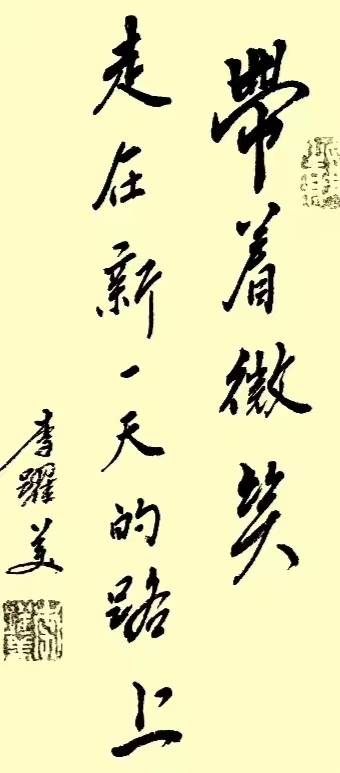 帶着微笑
走在新一天的路上
李躍美